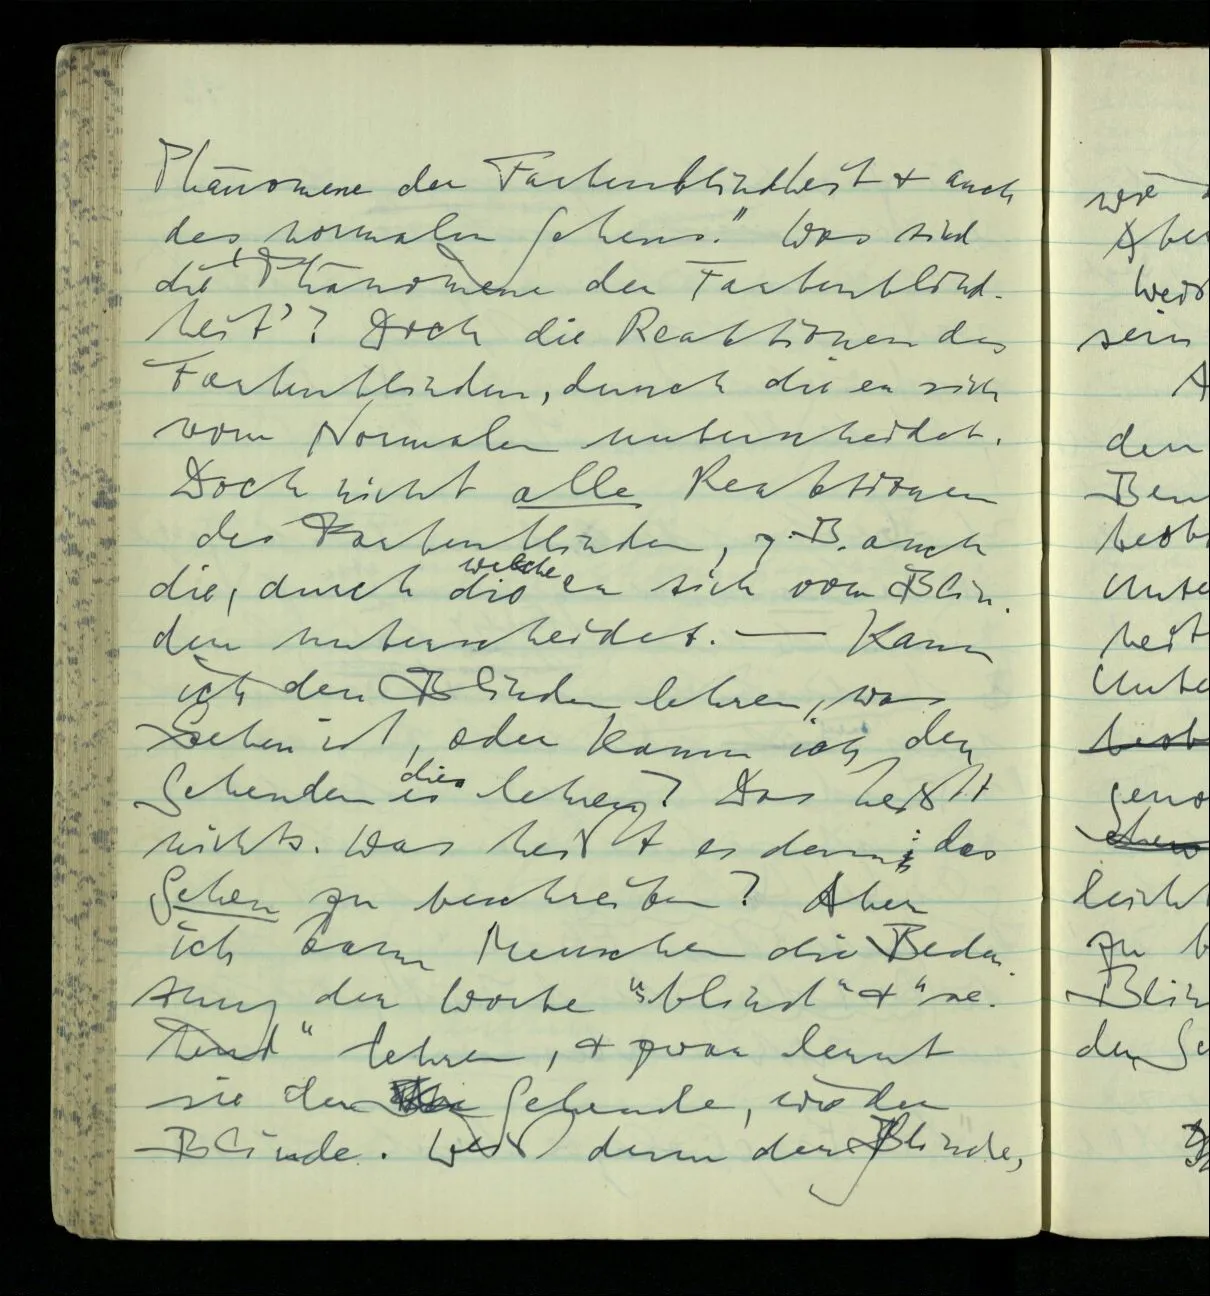 Phänomene der Farbenblindheit & auch
des normalen Sehens." Was sind
die 'Phänomene der Farbenblind-
heit'? Doch die Reaktionen des
Farbenblinden, durch die er sich
vom Normalen unterscheidet.
Doch nicht alle Reaktionen
des Farbenblinden, z.B. auch
die, durch die welche er sich vom Blin-
den unterscheidet. — Kann
ich den Blinden lehren, was
Sehen ist, oder kann ich den
Sehenden es dies lehren? Das heißt
nichts. Was heißt es denn: das
Sehen zu beschreiben? Aber
ich kann Menschen die Bedeu-
tung der Worte "blind" & "se-
hend" lehren, & zwar lernt
sie der Sehende, wie der
Blinde. Weiß denn der Blinde,
wie
Aber
sein
A
den
leicht
zu b